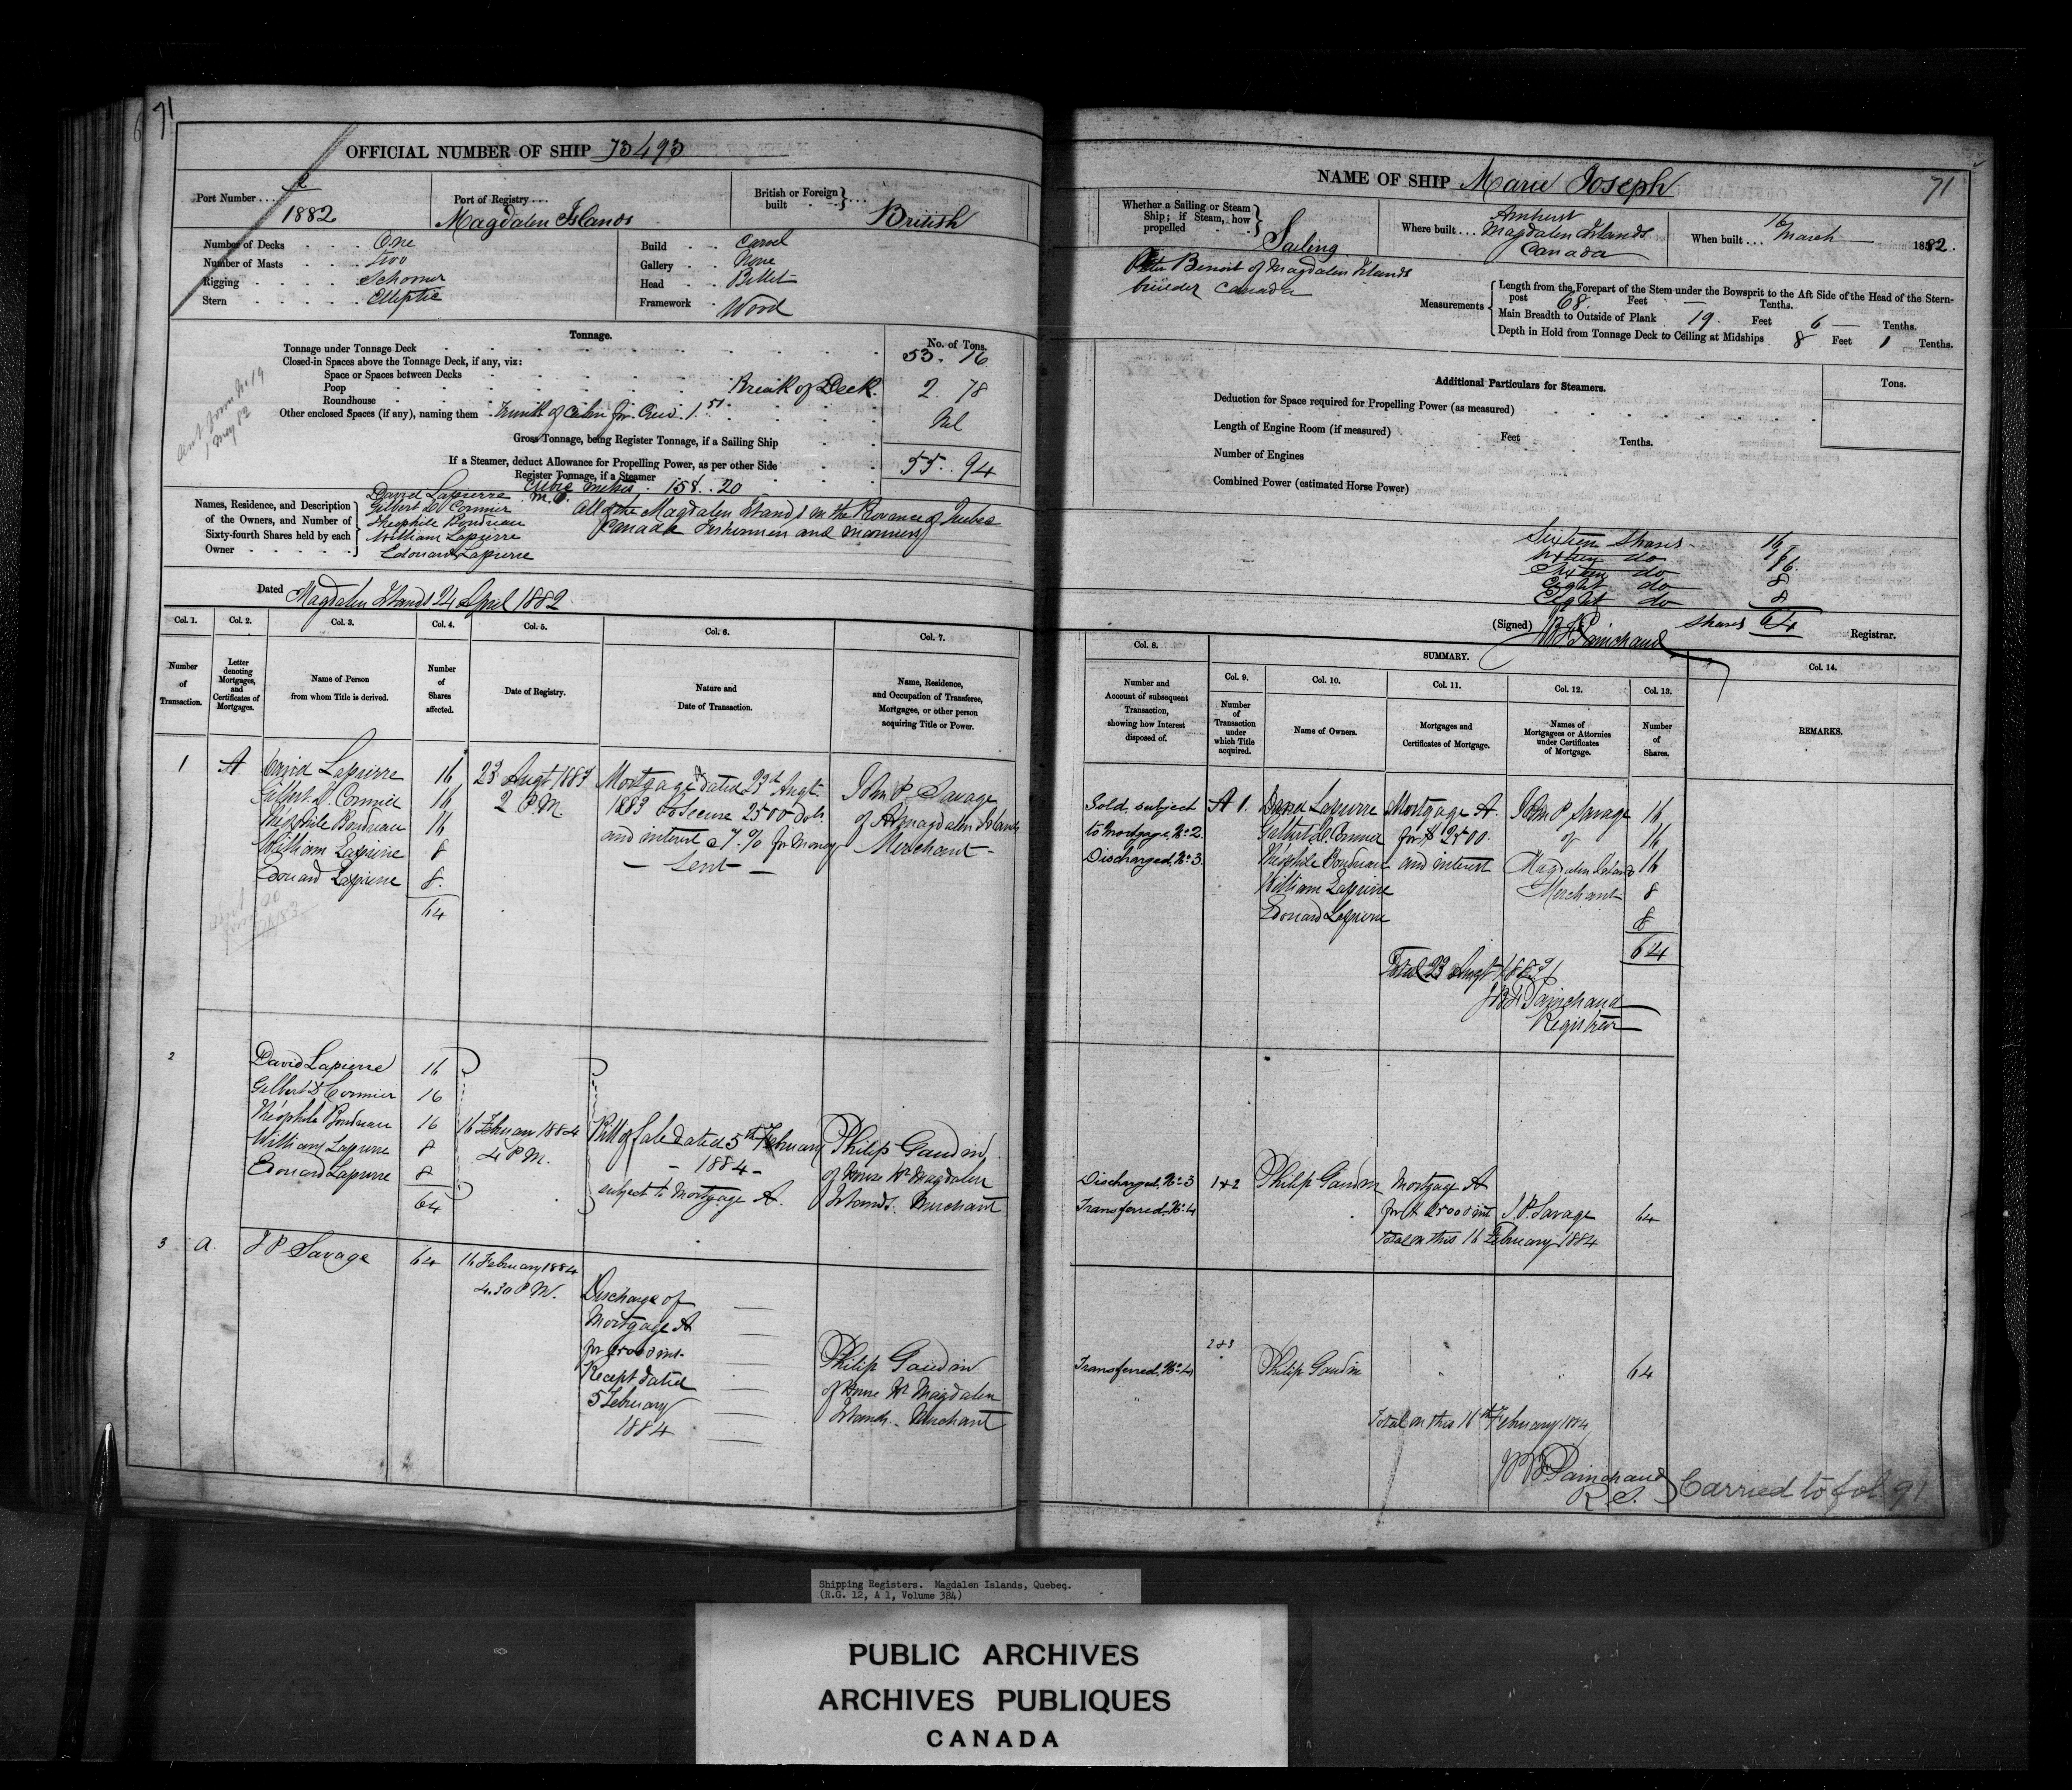 71
OFFICIAL NUMBER OF SHIP 73493
Port Number .... 2
1882
Port of Registry ....
Magdalen Islands
British or Foreign built
British
Number of Decks One
Number of Masts Two
Rigging Schooner
Stern Elliptic
Build Carvel
Gallery None
Head Billet
Framework Wood
Tonnage.
No. of Tons.
Tonnage under Tonnage Deck 53. 16
Closed-in Spaces above the Tonnage Deck, if any, viz:
Space or Spaces between Decks
Poop Break of Deck. 2. 78
Roundhouse
Other enclosed Spaces (if any), naming them Trunk of Cabin for Crew. 1.51 Nil
Gross Tonnage, being Register Tonnage, if a Sailing Ship
If a Steamer, deduct Allowance for Propelling Power, as per other Side 55. 94
Register Tonnage, if a Steamer
Cubic metres. 158. 20
May 82
Names, Residence, and Description of the Owners, and Number of Sixty-fourth Shares held by each Owner
David Lapierre
Gilbert D Cormier
Théophile Boudreau
William Lapierre
Edouard Lapierre
All of the Magdalen Islands in the Province of Quebec
Canada Fishermen and mariners
Dated Magdalen Islands 24 April 1882
Col. 1. Col. 2. Col. 3. Col. 4. Col. 5. Col. 6. Col. 7.
Number of Transaction.
Letter denoting Mortgages, and Certificates of Mortgages.
Name of Person from whom Title is derived.
Number of Shares affected.
Date of Registry.
Nature and Date of Transaction.
Name, Residence, and Occupation of Transferee, Mortgagee, or other person acquiring Title or Power.
1 A David Lapierre 16
Gilbert D. Cormier 16
Théophile Boudreau 16
William Lapierre 8
Edouard Lapierre 8.
64
23 Augt 1883
2 P.M.
Mortgage A dated 23d Augt
1883 to secure 2500 dols.
and interest a 7.% for money
- Lent -
John P Savage
of Magdalen Islands
Merchant -
2 David Lapierre 16
Gilbert D Cormier 16
Théophile Boudreau 16
William Lapierre 8
Edouard Lapierre 8
64
16 February 1884
4 P.M.
Bill of Sale dated 5th February
- 1884 -
subject to Mortgage A.
Philip Gaudin
of Magdalen
Islands. Merchant
3 a. J P Savage 64 16 February 1884
4.30 P M.
Discharge of
Mortgage A
Recept dated
5 February
1884
Philip Gaudin
of Magdalen
Islands - Merchant
NAME OF SHIP Marie Joseph 71
Whether a Sailing or Steam Ship; if Steam, how propelled
Sailing
Where built ... Amherst
Magdalen Islands
Canada
When built .... 16 March 1882.
Benoit of Magdalen Islands
builder Canada
Measurements
Length from the Forepart of the Stem under the Bowsprit to the Aft Side of the Head of the Stern-
post 68. Feet — Tenths.
Main Breadth to Outside of Plank 19. Feet 6 — Tenths.
Depth in Hold from Tonnage Deck to Ceiling at Midships 8 Feet 1 Tenths.
Additional Particulars for Steamers. Tons.
Deduction for Space required for Propelling Power (as measured)
Length of Engine Room (if measured) Feet Tenths.
Number of Engines
Combined Power (estimated Horse Power)
Sixteen shares 16
Sixteen do 16
Sixteen do 16.
Eight do 8
Eight do 8
Shares 64
(Signed) J.B.F. Painchaud Registrar.
Col. 8. SUMMARY. Col. 14.
Col. 9. Col. 10. Col. 11. Col. 12. Col. 13.
Number and Account of subsequent Transaction, showing how Interest disposed of.
Number of Transaction under which Title acquired.
Name of Owners.
Mortgages and Certificates of Mortgage.
Names of Mortgagees or Attornies under Certificates of Mortgage.
Number of Shares.
REMARKS.
Sold, subject
to Mortgage, No. 2
Discharged, No. 3
A 1. David Lapierre
Gilbert D. Cormier
Théophile Boudreau
William Lapierre
Edouard Lapierre
Mortgage A.
for $ 2500.
and interest
John P Savage
of
Magdalen Islands
Merchant
16
16
16
8
8
64
Total 23 Augt 1883
J.B.F. Painchaud
Registrar
Discharged, No. 3
Transferred, No. 4
1&2 Philip Gaudin Mortgage A
J. P. Savage 64
Total on this 16 February 1884
Transferred, No. 4
2&3 Philip Gaudin 64
Total on this 16th February 1884
J B F Painchaud
R. S.
Carried to fol. 91
Shipping Registers. Magdalen Islands, Quebec.
(R.G. 12, A 1, Volume 384)
PUBLIC ARCHIVES
ARCHIVES PUBLIQUES
CANADA